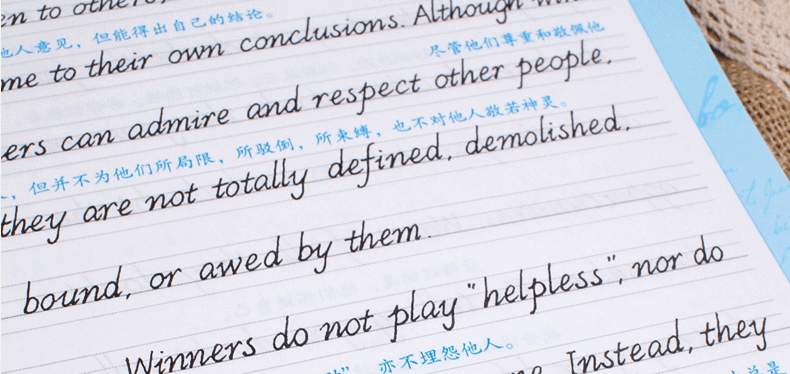 en to othe
他人意见，但能得出自己的结论。
me to their own conclusions. Although
尽管他们尊重和敬佩他
ers can admire and respect other people,
，但并不为他们所局限，所驳倒，所束缚，也不对他人敬若神灵。
they are not totally defined, demolished,
bound, or awed by them.
Winners do not play "helpless", nor do
亦不埋怨他人。
Instead, they